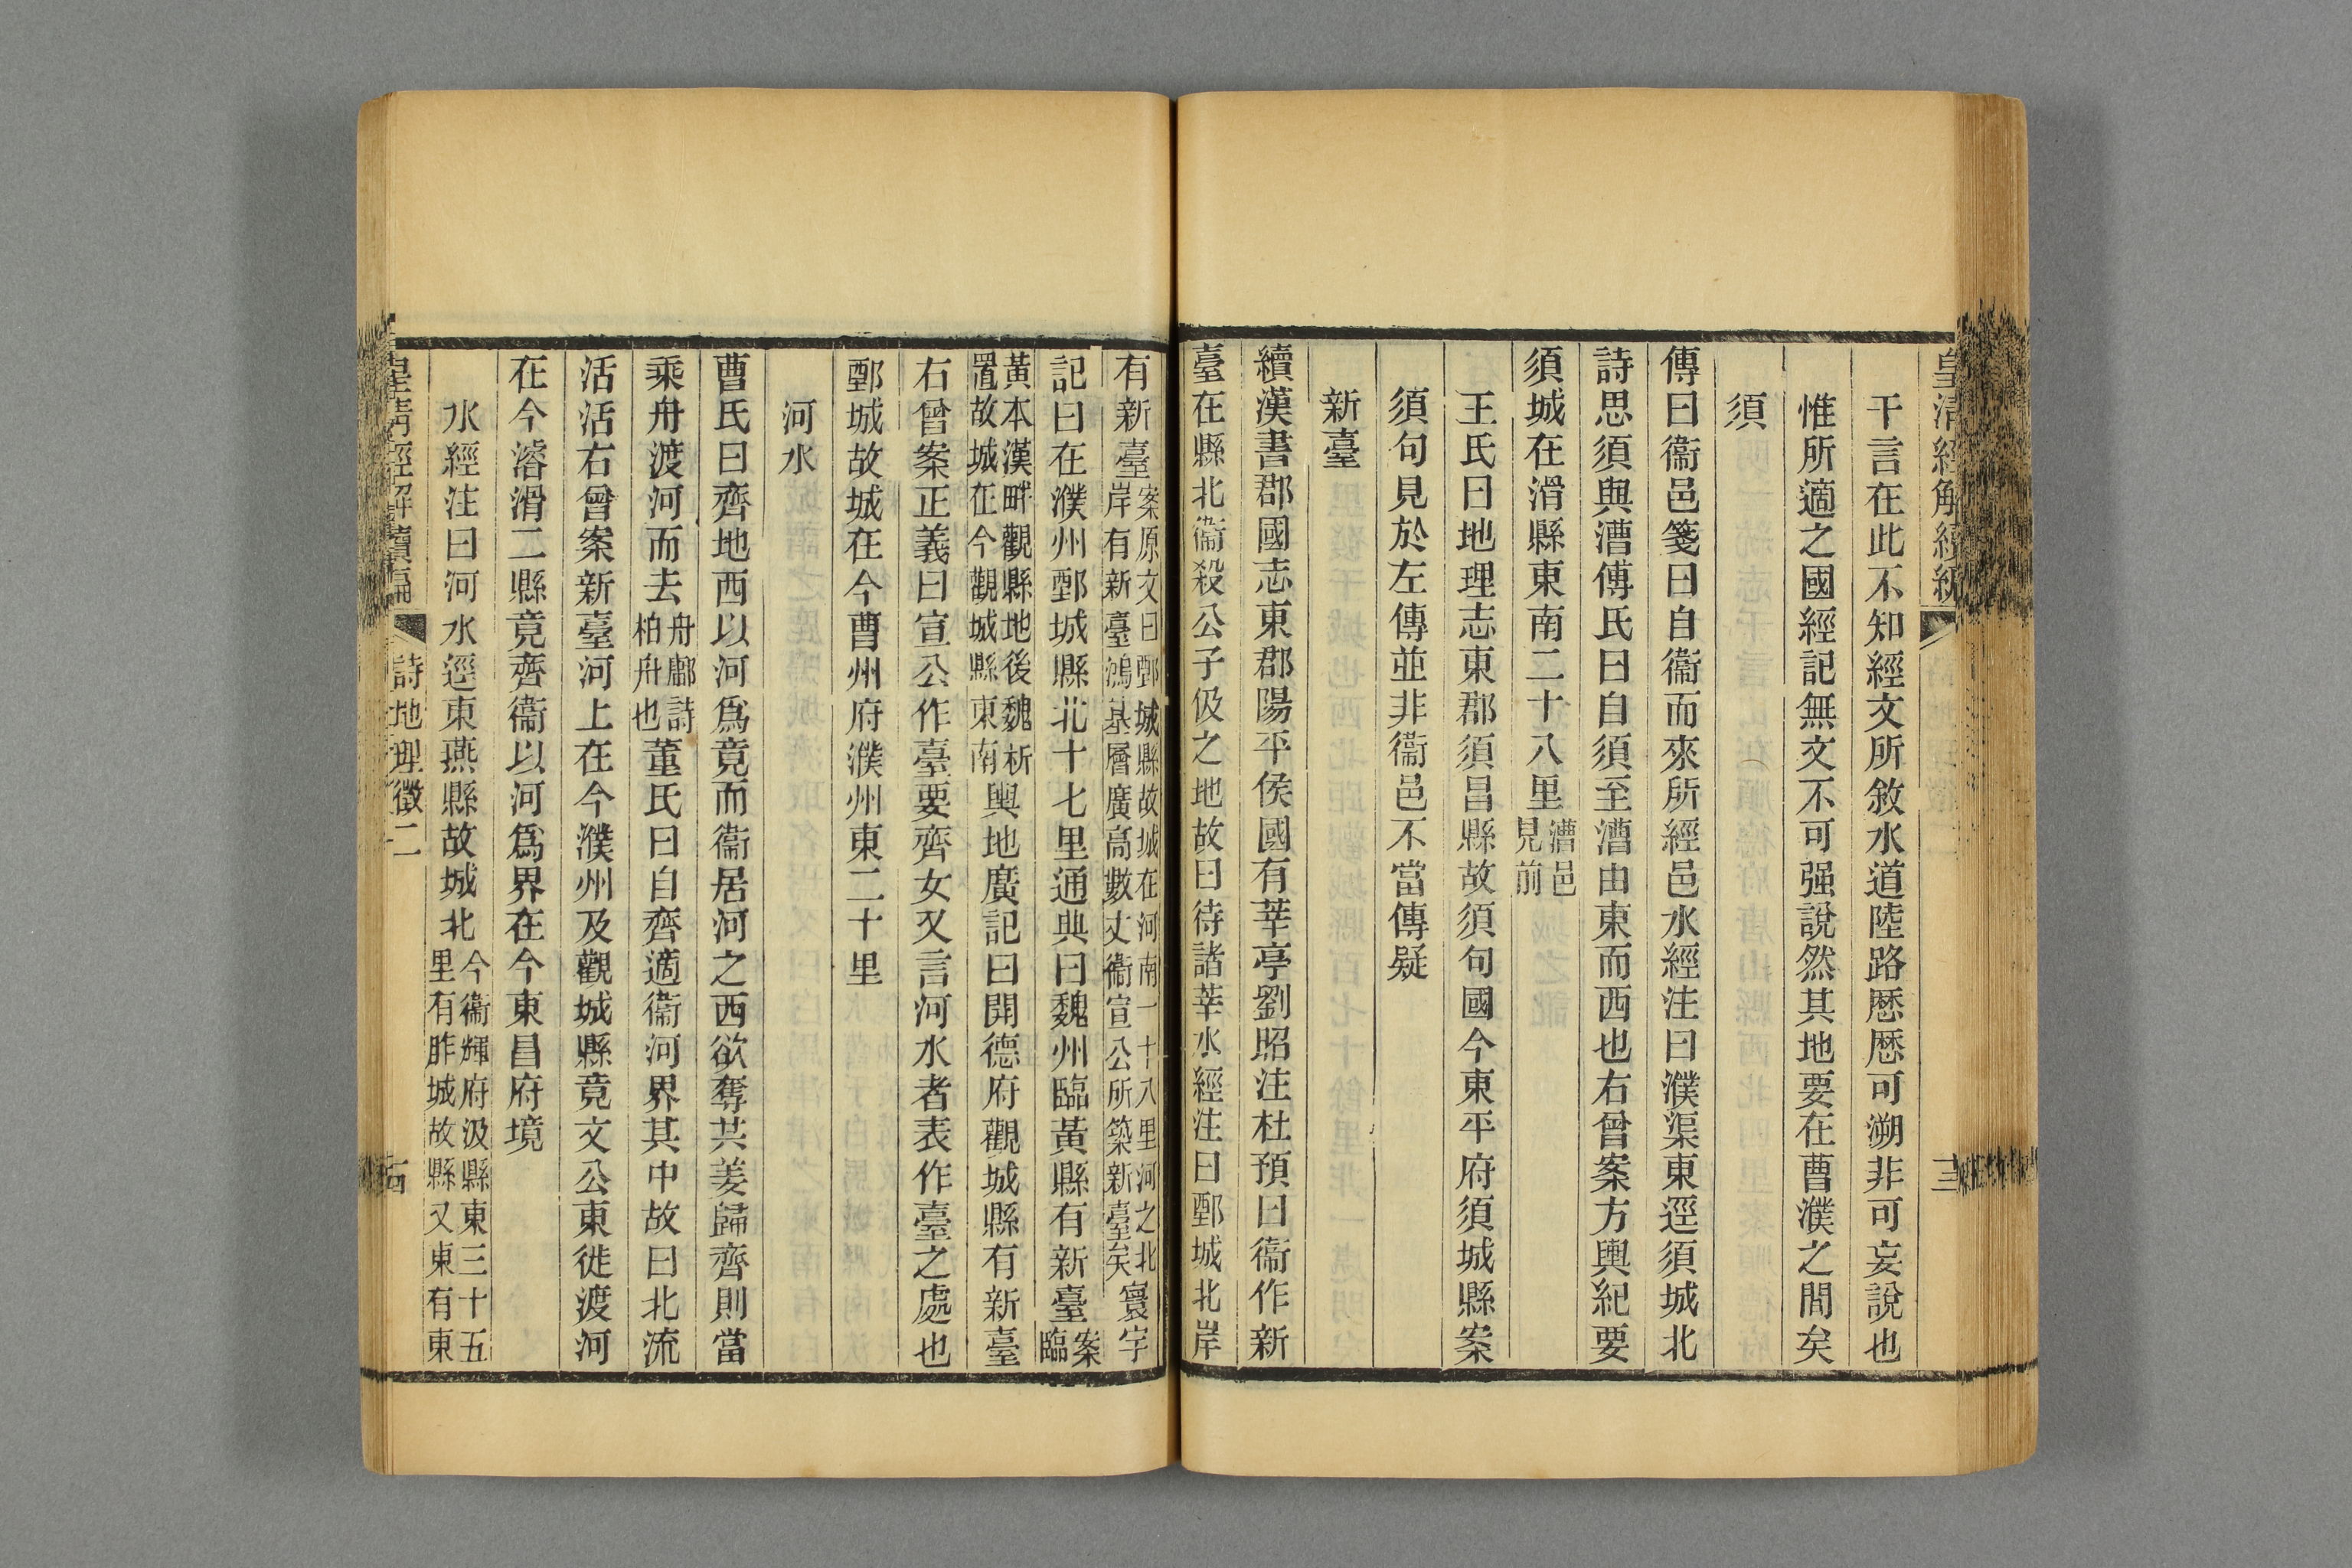 皇清經解續編
三
干言在此不知經文所敘水道陸路厯厯可溯非可妄說也
惟所適之國經記無文不可强說然其地要在曹濮之間矣
須
傳曰衞邑箋曰自衞而來所經邑水經注曰濮渠東逕須城北
詩思須與漕傅氏曰自須至漕由東而西也右曾案方輿紀要
須城在滑縣東南二十八里漕邑見前
王氏曰地理志東郡須昌縣故須句國今東平府須城縣案
須句見於左傳並非衞邑不當傳疑
新臺
續漢書郡國志東郡陽平侯國有莘亭劉昭注杜預曰衞作新
臺在縣北衞殺公子伋之地故曰待諸莘水經注曰鄄城北岸
有新臺案原文曰鄄城縣故城在河南一十八里河之北岸有新臺鴻基層廣高數丈衞宣公所築新臺矣寰宇
記曰在濮州鄄城縣北十七里通典曰魏州臨黃縣有新臺案臨
黃本漢畔觀縣地後魏析置故城在今觀城縣東南輿地廣記曰開德府觀城縣有新臺
右曾案正義曰宣公作臺要齊女又言河水者表作臺之處也
鄄城故城在今曹州府濮州東二十里
河水
曹氏曰齊地西以河爲竟而衞居河之西欲奪共姜歸齊則當
乘舟渡河而去舟鄘詩柏舟也董氏曰自齊適衞河界其中故曰北流
活活右曾案新臺河上在今濮州及觀城縣竟文公東徙渡河
在今濬滑二縣竟齊衞以河爲界在今東昌府境
水經注曰河水逕東燕縣故城北今衞輝府汲縣東三十五里有胙城故縣又東有東
皇清經解續編
詩地理徵二
古